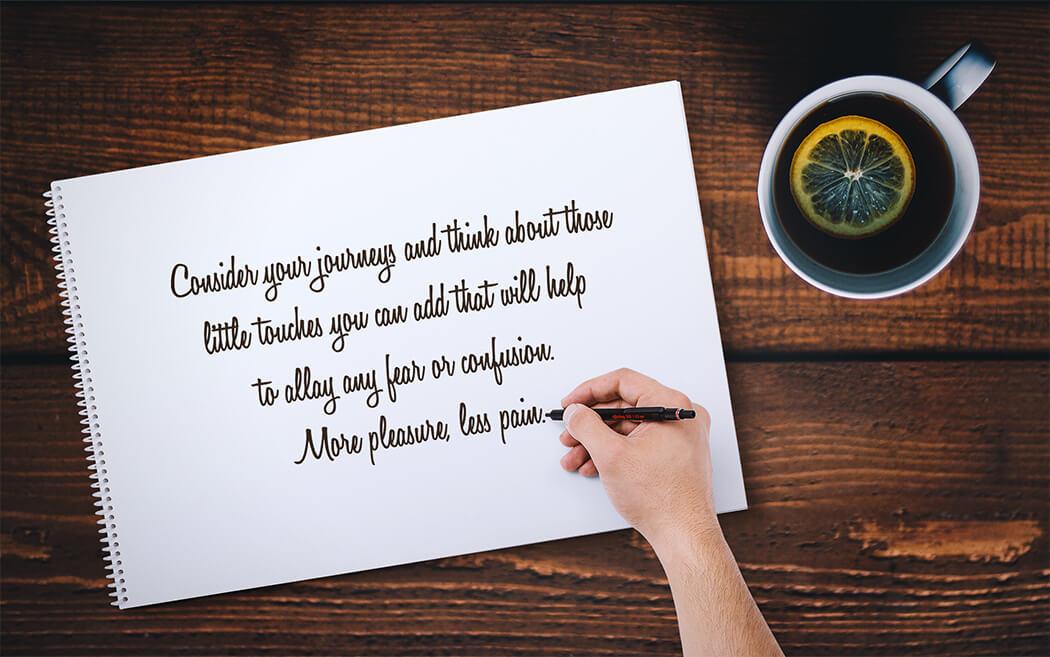 Consider your journeys and think about those
little touches you can add that will help
to allay any fear or confusion.
More pleasure, less pain.